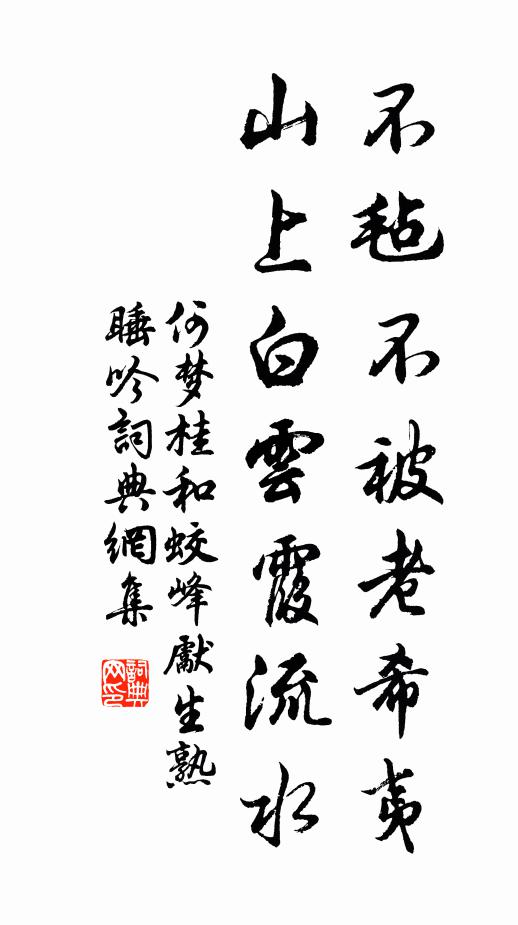 不毡不被老希夷
山上白雲霞流水
何梦桂和蛟峰獻生熟
睡吟詞典網集
詞典网印